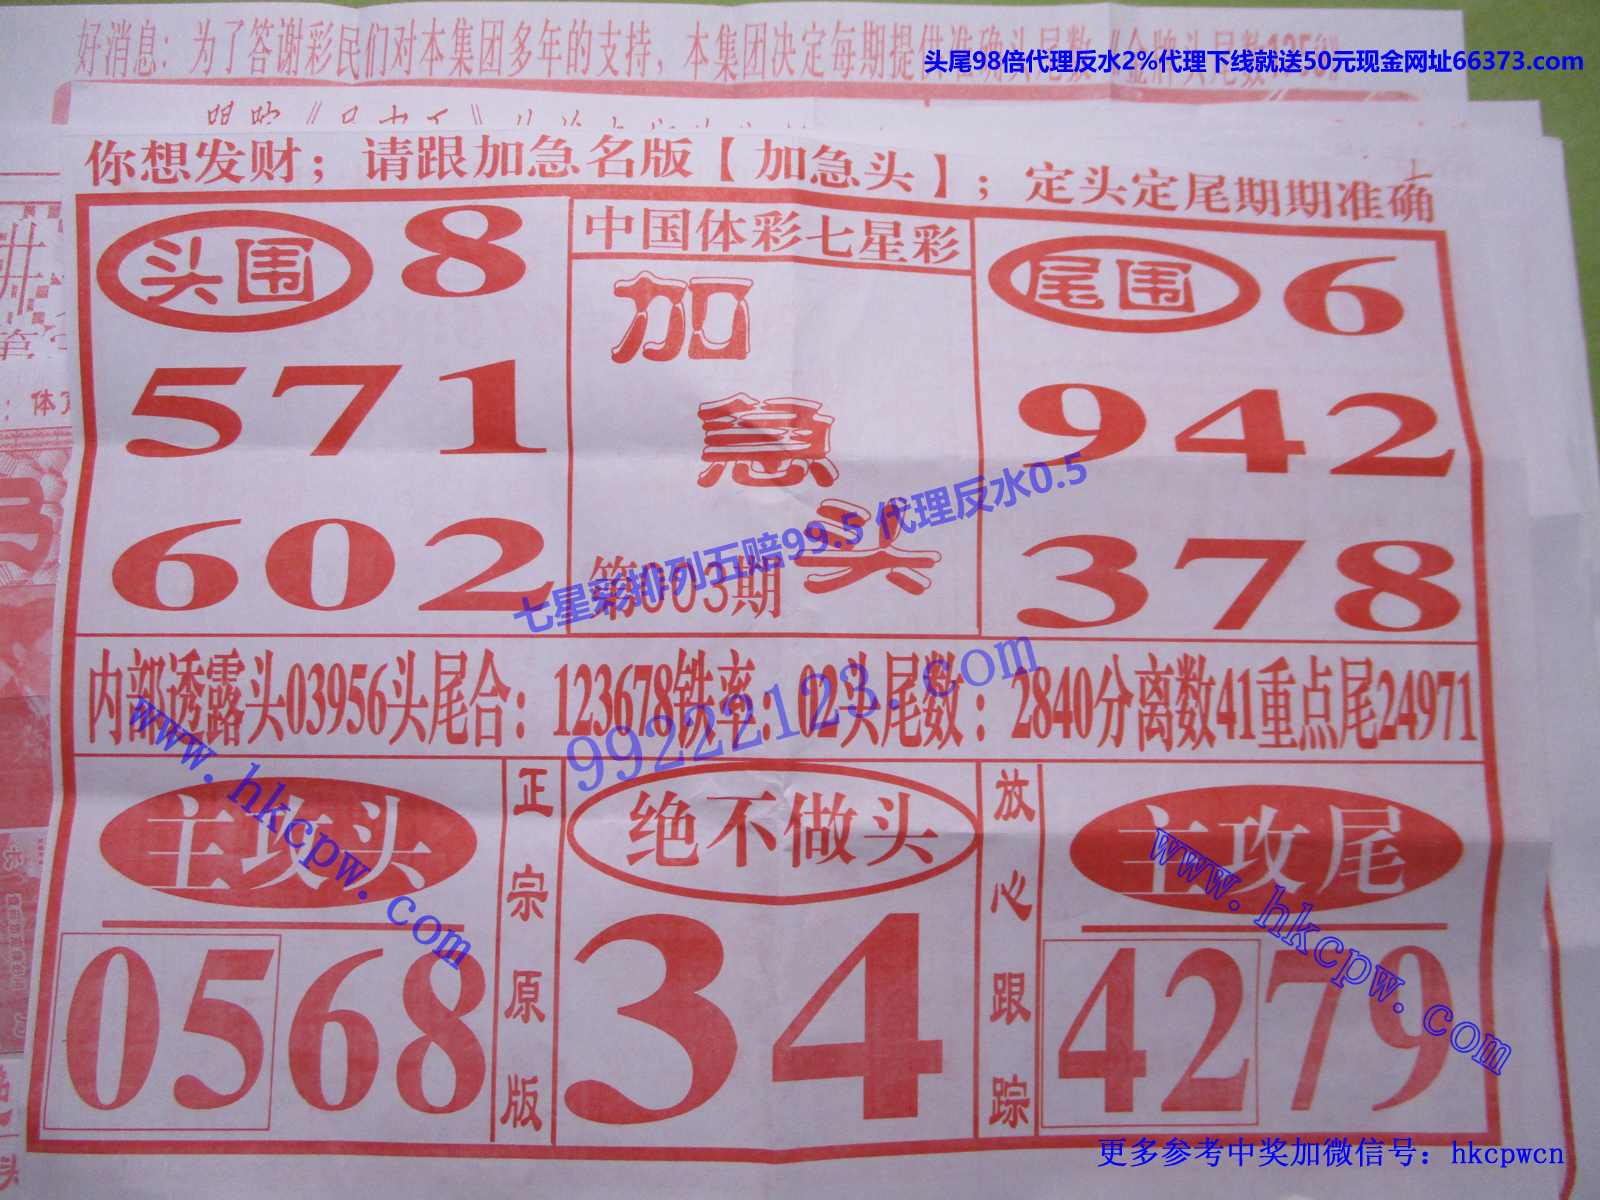 好消息：为了答谢彩民们对本集团多年的支持，本集团决定每期提供准确头尾数《金牌头尾数
头尾98倍代理反水2%代理下线就送50元现金网址66373.com
你想发财；请跟加急名版【加急头】；定头定尾期期准确
头围 8
571
602
中国体彩七星彩
加
急
头
第003期
尾围 6
942
378
七星彩排列五赔99.5 代理反水0.5
内部透露头03956头尾合：123678铁率：02头尾数：2840分离数41重点尾24971
99222123.com
www.hkcpw.com
主攻头
0568
正宗原版
绝不做头
34
放心跟踪
主攻尾
4279
www.hkcpw.com
更多参考中奖加微信号：hkcpwcn